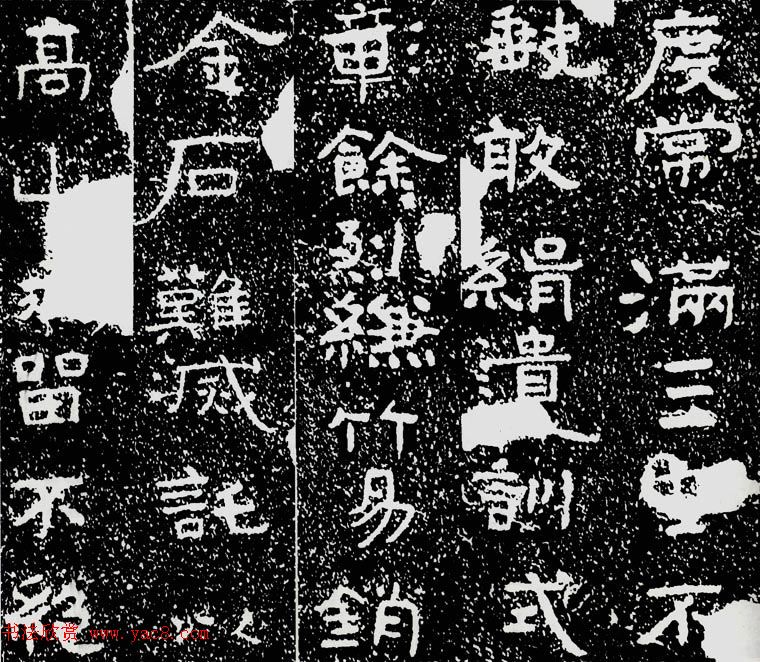 度常滿三不
敢緝遺訓式
彰餘烈縑竹易銷
金石難滅託以
高山永留不絕
书法欣赏 www.yac8.com